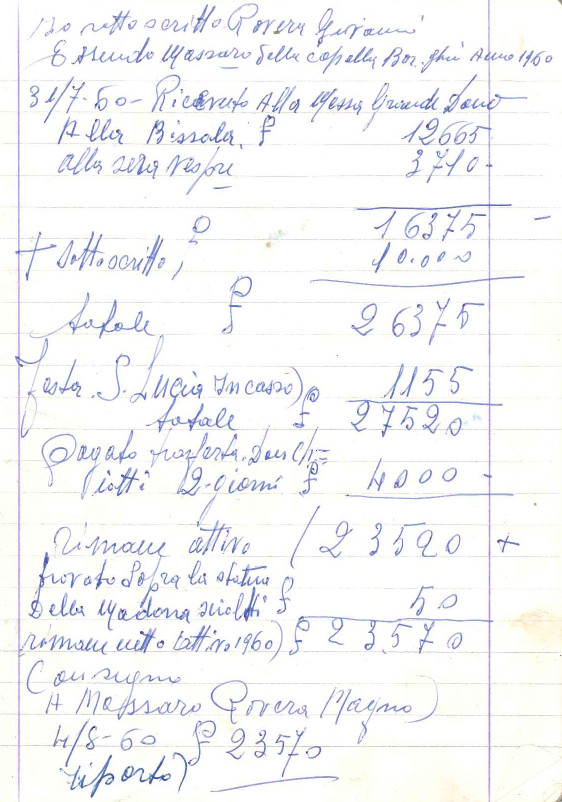 Io sottoscritto Rovera Giovanni
Essendo Massaro della Capella Bor.ghin Anno 1960
31/7-60 - Ricevuto Alla Messa Grande Dono
Alla Bissola. £ 12665
alla sera vespri 3710-
£ 16375 -
+ sottoscritto, 10.000
totale £ 26375
festa. S. Lucia Incasso) £ 1155
totale £ 27520
Pagato trasferta. Don Ch=
iotti 2-giorni £ 4000 -
rimane attivo / 23520 +
trovato Sopra la statua
Della Madona £ 50
rimane netto (attivo 1960) £ 23570
Consegno
A Massaro Rovera Magno)
4/8-60 £ 23570
riporto)